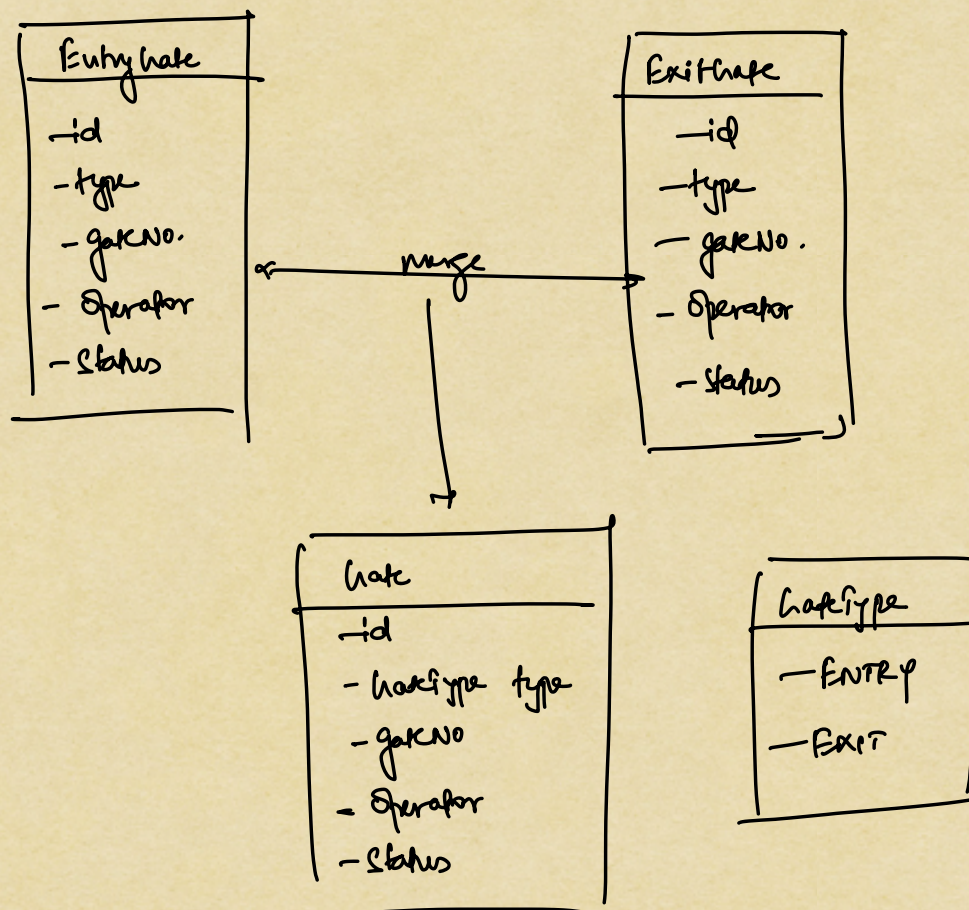 EntryGate
- id
- type
- gateNo.
- Operator
- Status
ExitGate
- id
- type
- gateNo.
- Operator
- Status
merge
Gate
- id
- GateType type
- gateNo
- Operator
- Status
GateType
- ENTRY
- EXIT